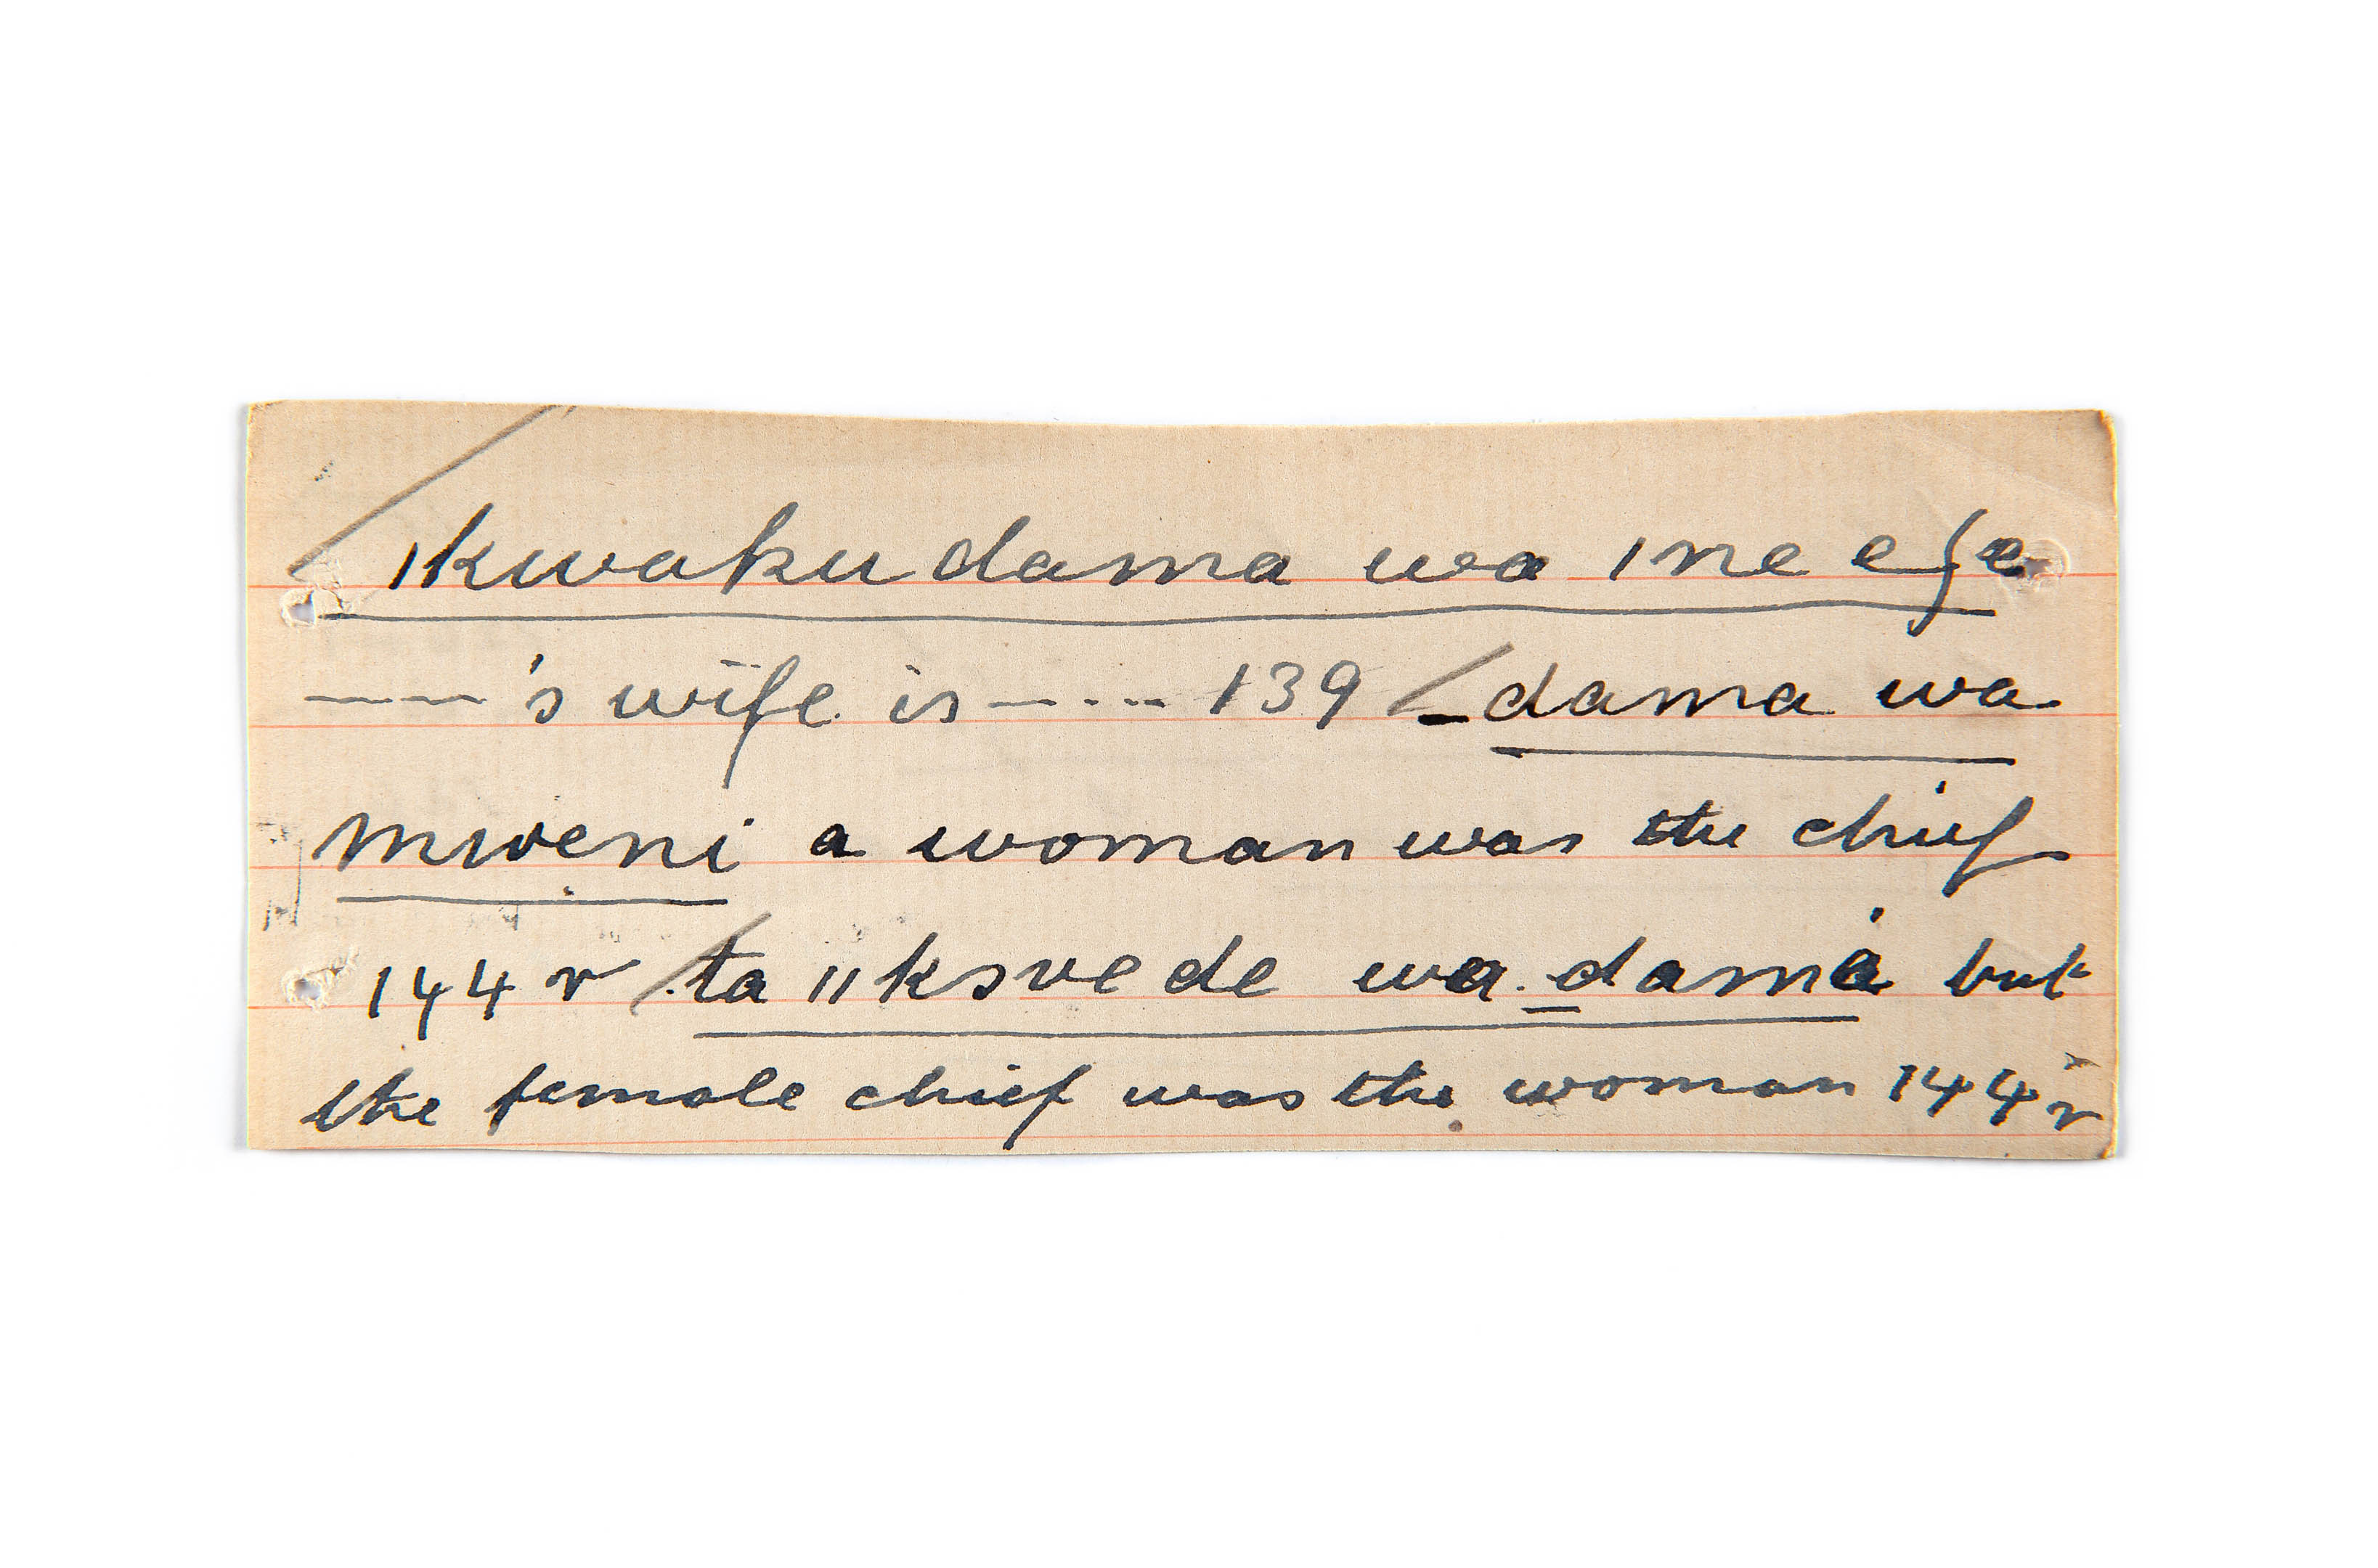 ıkwaku dama wa ıne eʃe
——'s wife is —--- 139 / dama wa
mweni a woman was the chief
144 r / ta ıı ksvede wa dama but
the female chief was the woman 144 r